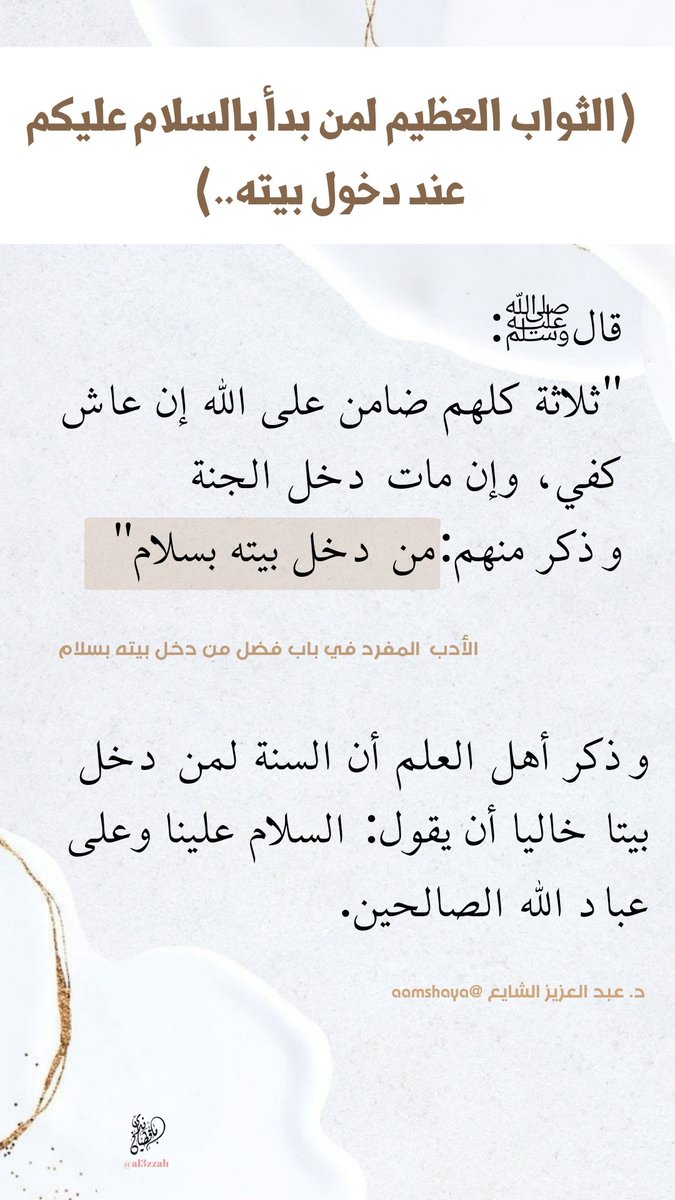 (الثواب العظيم لمن بدأ بالسلام عليكم
عند دخول بيته..)
قال ﷺ:
"ثلاثة كلهم ضامن على الله إن عاش
كفي، وإن مات دخل الجنة
وذكر منهم:من دخل بيته بسلام"
الأدب المفرد في باب فضل من دخل بيته بسلام
وذكر أهل العلم أن السنة لمن دخل
بيتا خاليا أن يقول: السلام علينا وعلى
عباد الله الصالحين.
د. عبد العزيز الشايع @aamshaya
@al3zzah